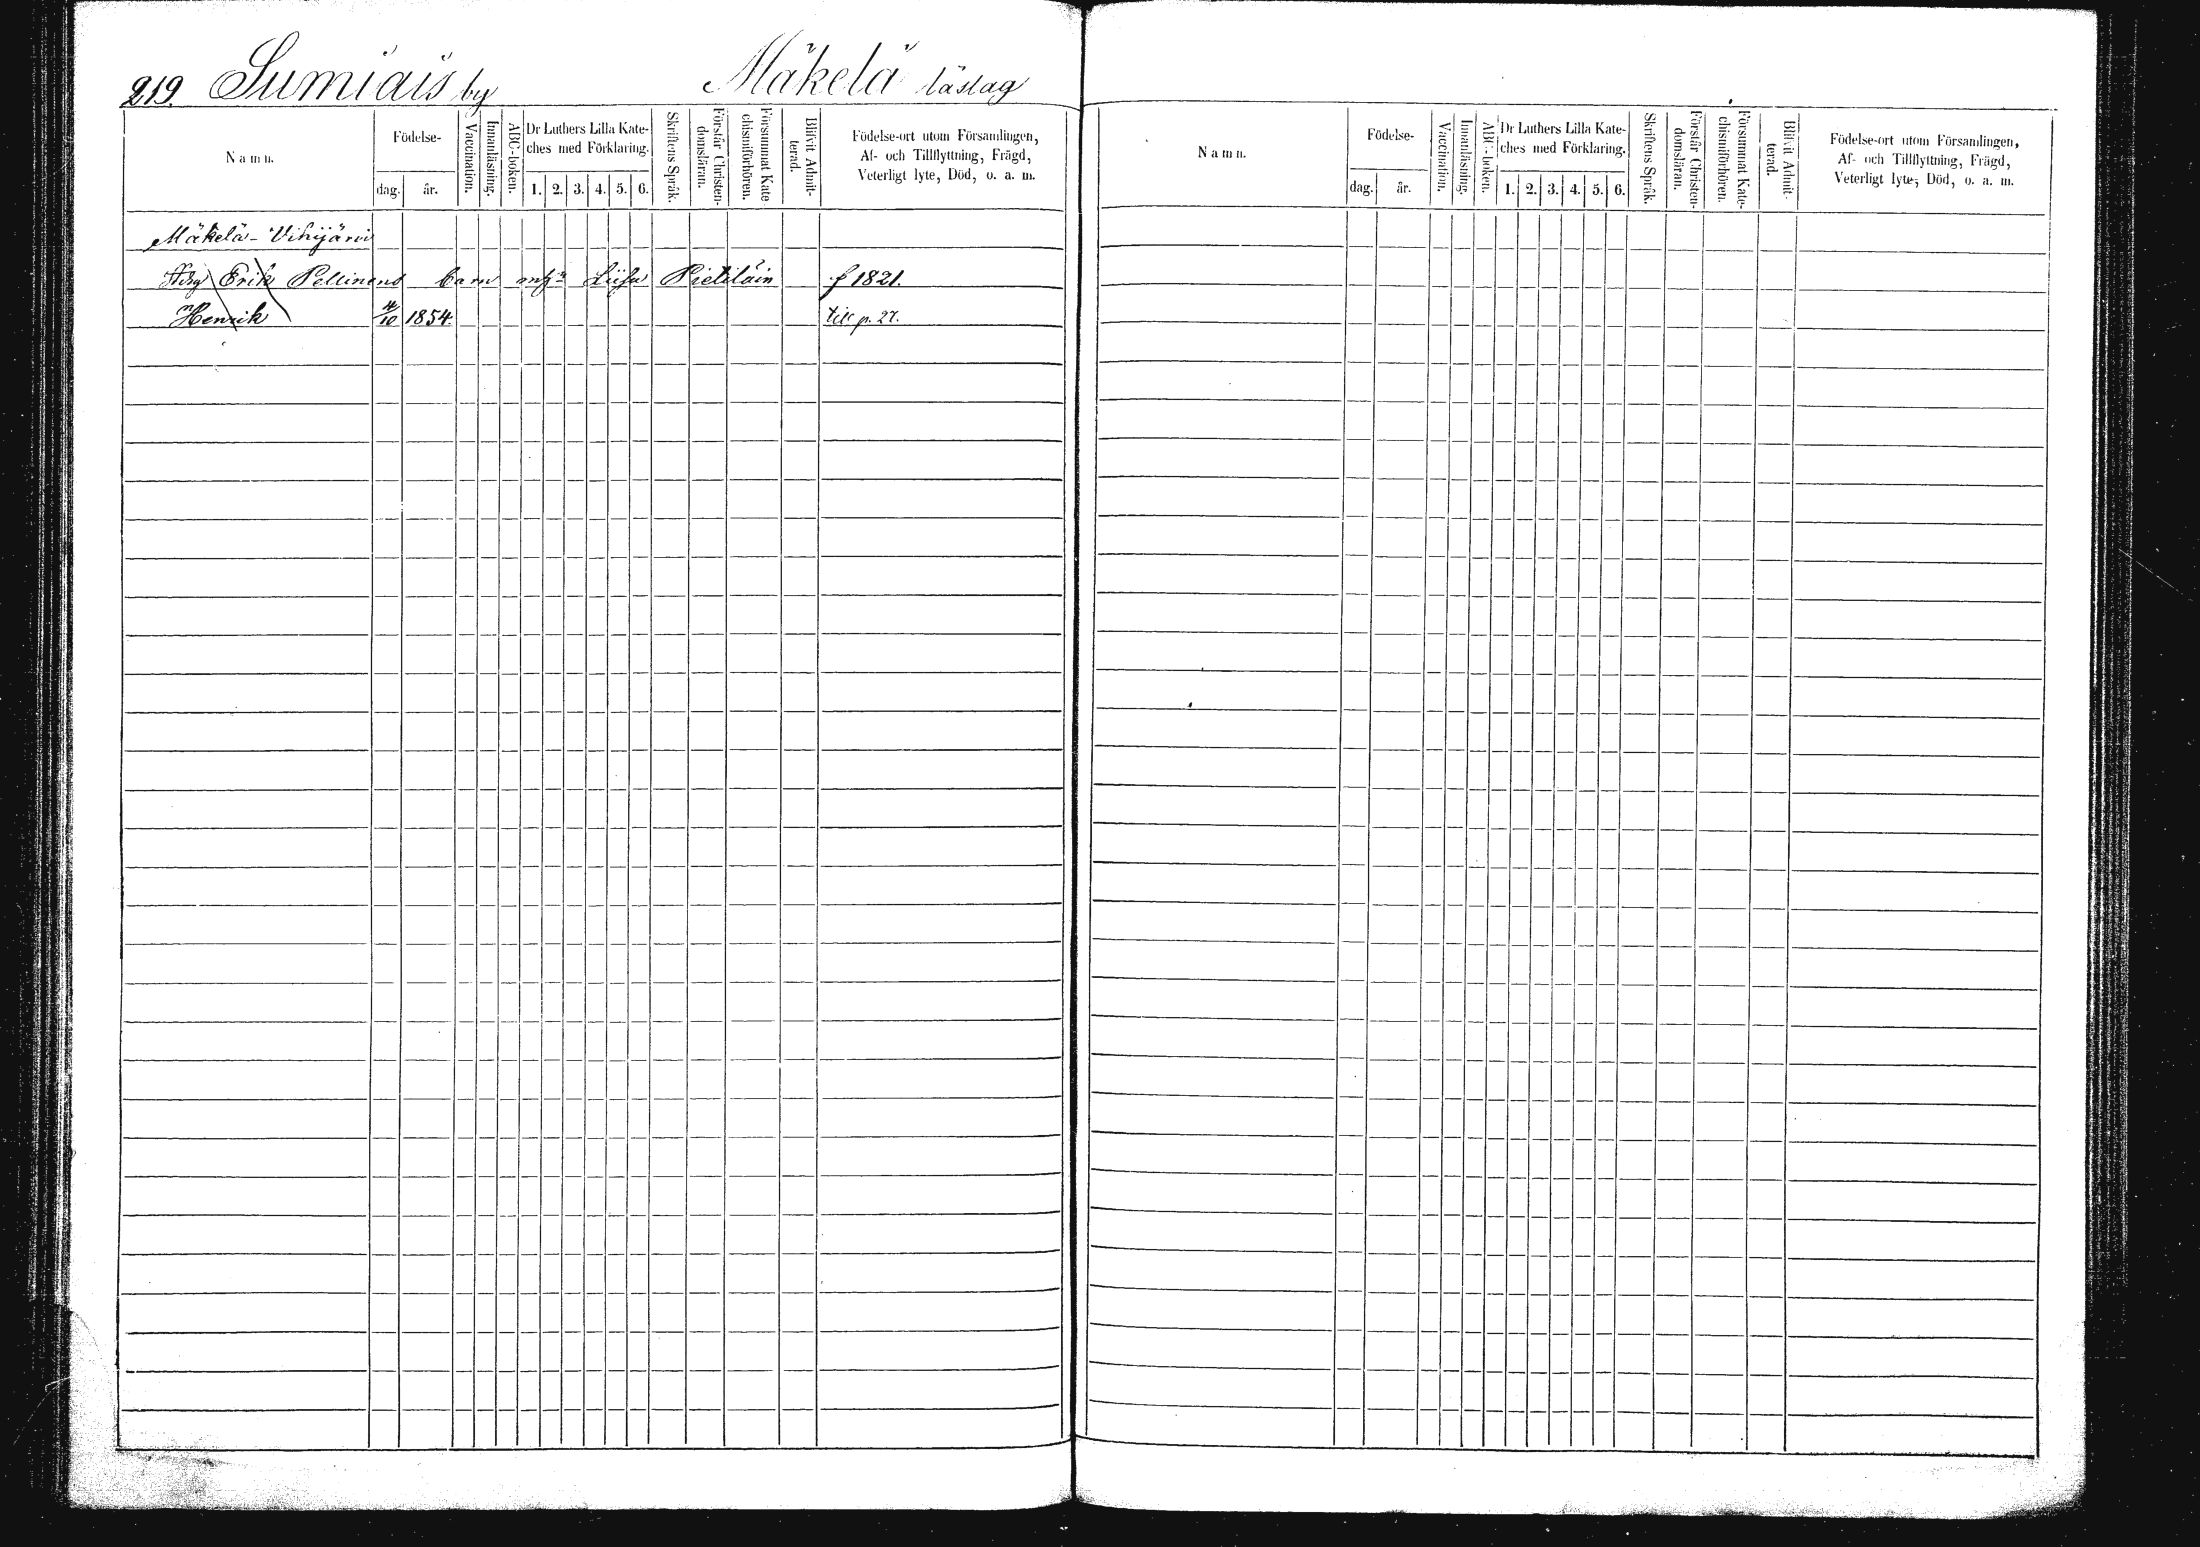 219. Sumiais by Mäkelä läslag
Namn.
Födelse-
dag. år.
Vaccination.
Innanläsning.
ABC-boken.
Dr Luthers Lilla Kate-
ches med Förklaring.
1. 2. 3. 4. 5. 6.
Skriftens Språk.
Förstår Christen-
domsläran.
Försummat Kate-
chismiförhören.
Blifvit Admit-
terad.
Födelse-ort utom Församlingen,
Af- och Tillflyttning, Frägd,
Veterligt lyte, Död, o. a. m.
Mäkelä - Vihijärvi
Erik Pellinens barn Liisa Pietiläin f 1821.
Henrik 4/10 1854. till p. 27.
Namn.
Födelse-
dag. år.
Vaccination.
Innanläsning.
ABC-boken.
Dr Luthers Lilla Kate-
ches med Förklaring.
1. 2. 3. 4. 5. 6.
Skriftens Språk.
Förstår Christen-
domsläran.
Försummat Kate-
chismiförhören.
Blifvit Admit-
terad.
Födelse-ort utom Församlingen,
Af- och Tillflyttning, Frägd,
Veterligt lyte, Död, o. a. m.